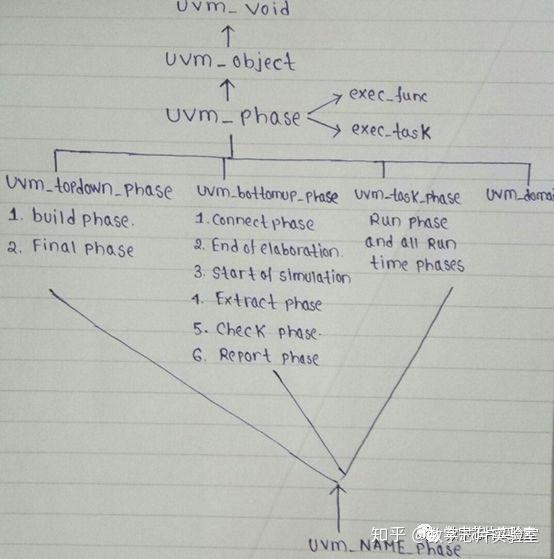 uvm_void
uvm_object
uvm_phase
exec_func
exec_task
uvm_topdown_phase
1. build phase.
2. Final phase
uvm_bottomup_phase
1. Connect phase
2. End of elaboration.
3. Start of simulation
4. Extract phase
5. Check phase.
6. Report phase
uvm_task_phase
Run phase
and all Run
time phases
uvm_domai
知乎 @数字芯片实验室
uvm_NAME_phase